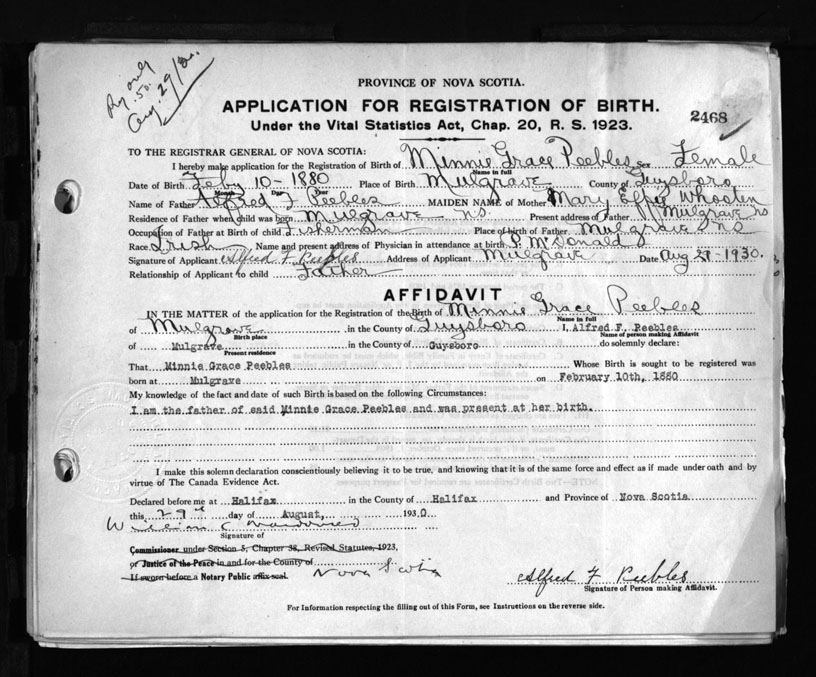 Aug. 29/30.
PROVINCE OF NOVA SCOTIA.
APPLICATION FOR REGISTRATION OF BIRTH.
2468
Under the Vital Statistics Act, Chap. 20, R. S. 1923.
TO THE REGISTRAR GENERAL OF NOVA SCOTIA:
I hereby make application for the Registration of Birth of Minnie Grace Peebles Sex Female
Name in full
Date of Birth Feby 10 - 1880 Place of Birth Mulgrave County of Guysboro
Month Day Year
Name of Father Alfred F Peebles MAIDEN NAME of Mother Mary Effie Whooten
Residence of Father when child was born Mulgrave N.S. Present address of Father Mulgrave NS
Occupation of Father at Birth of child Fisherman Place of birth of Father Mulgrave NS
Race Irish Name and present address of Physician in attendance at birth P McDonald
Signature of Applicant Alfred F Peebles Address of Applicant Mulgrave Date Aug 29 - 1930.
Relationship of Applicant to child Father
AFFIDAVIT
IN THE MATTER of the application for the Registration of the Birth of Minnie Grace Peebles
Name in full
of Mulgrave in the County of Guysboro I, Alfred F. Peebles
Birth place Name of person making Affidavit
of Mulgrave in the County of Guysboro do solemnly declare:
Present residence
That Minnie Grace Peebles Whose Birth is sought to be registered was
born at Mulgrave on February 10th, 1880
My knowledge of the fact and date of such Birth is based on the following Circumstances:
I am the father of said Minnie Grace Peebles and was present at her birth.
I make this solemn declaration conscientiously believing it to be true, and knowing that it is of the same force and effect as if made under oath and by
virtue of The Canada Evidence Act.
Declared before me at Halifax in the County of Halifax and Province of Nova Scotia
this 29th day of August, 1930
William C
Signature of
Commissioner under Section 5, Chapter 38, Revised Statutes, 1923,
or Justice of the Peace in and for the County of
If sworn before a Notary Public affix seal. Nova Scotia
Alfred F Peebles
Signature of Person making Affidavit.
For Information respecting the filling out of this Form, see Instructions on the reverse side.